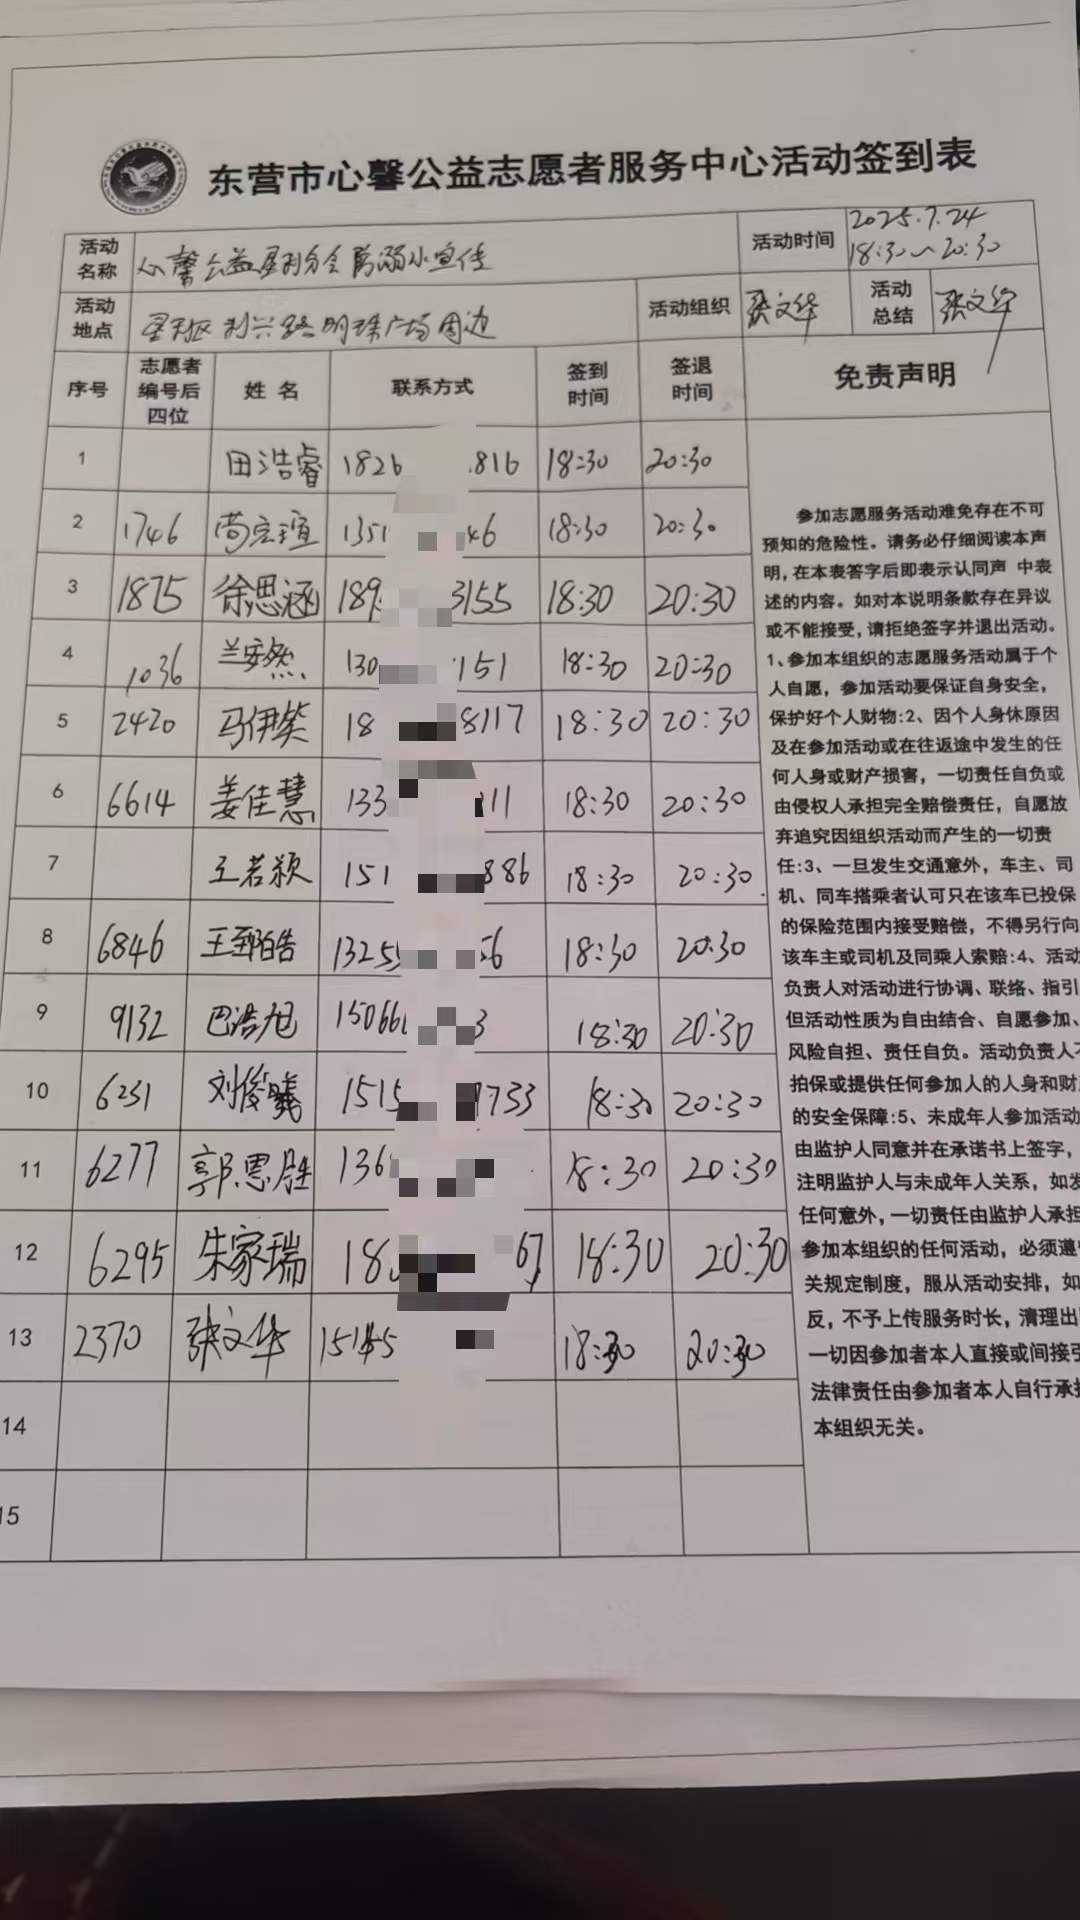 东营市心馨公益志愿者服务中心活动签到表
活动名称 心馨公益垦利分会防溺水宣传 活动时间 2025.7.24 18:30~20:30
活动地点 垦利区利兴路明珠广场周边 活动组织 张文华 活动总结 张文华
序号 志愿者编号后四位 姓名 联系方式 签到时间 签退时间 免责声明
1 田浩睿 182 816 18:30 20:30
2 1746 尚宏瑄 1351 46 18:30 20:30
3 1875 徐思涵 189 3155 18:30 20:30
4 1036 兰安然 130 151 18:30 20:30
5 2420 马伊燊 18 8117 18:30 20:30
6 6614 姜佳慧 133 11 18:30 20:30
7 王若颖 151 886 18:30 20:30
8 6846 王郅皓 13255 6 18:30 20:30
9 9132 巴浩旭 15066 3 18:30 20:30
10 6231 刘俊曦 1515 733 18:30 20:30
11 6277 郭思胜 136 18:30 20:30
12 6295 朱家瑞 18 67 18:30 20:30
13 2370 张文华 15145 18:30 20:30
14
15
参加志愿服务活动难免存在不可
预知的危险性。请务必仔细阅读本声
明,在本表答字后即表示认同声 中表
述的内容。如对本说明条款存在异议
或不能接受,请拒绝签字并退出活动。
1、参加本组织的志愿服务活动属于个
人自愿，参加活动要保证自身安全，
保护好个人财物:2、因个人身休原因
及在参加活动或在往返途中发生的任
何人身或财产损害，一切责任自负或
由侵权人承担完全赔偿责任，自愿放
弃追究因组织活动而产生的一切责
任:3、一旦发生交通意外，车主、司
机、同车搭乘者认可只在该车已投保
的保险范围内接受赔偿，不得另行向
该车主或司机及同乘人索赔:4、活动
负责人对活动进行协调、联络、指引
但活动性质为自由结合、自愿参加、
风险自担、责任自负。活动负责人不
拍保或提供任何参加人的人身和财
的安全保障:5、未成年人参加活动
由监护人同意并在承诺书上签字，
注明监护人与未成年人关系，如发
任何意外,一切责任由监护人承担
参加本组织的任何活动，必须遵
关规定制度，服从活动安排，如
反，不予上传服务时长，清理出
一切因参加者本人直接或间接引
法律责任由参加者本人自行承担
本组织无关。